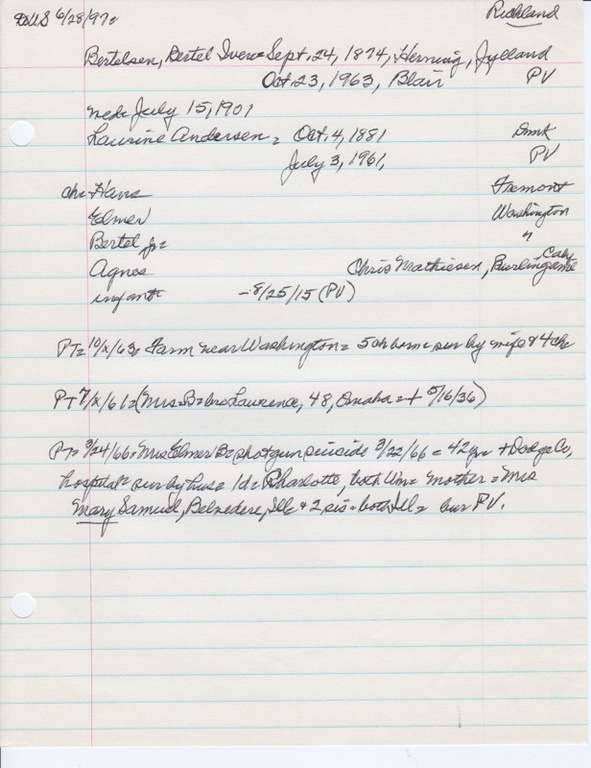 6/28/97= Richland
Bertelsen, Bertel Iver= Sept. 24, 1874, Herning, Jylland
Oct. 23, 1963, Blair PV
med= July 15, 1901
Laurine Andersen = Oct. 4, 1881 Dmk
July 3, 1961, PV
ch= Hans Fremont
Elmer Washington
Bertel jr= "
Agnes Chris Mathiesen, Burlingame Cal=
infant - 8/25/15 (PV)
PT= 10/x/63= Farm near Washington= 5 ch born= sur by wife & 4 ch
PT 7/x/61= (Mrs B= bro Laurence, 48, Omaha = + 5/16/36)
PT= 3/24/66= Mrs Elmer B= shotgun suicide 3/22/66 = 42 yr= + Dodge Co,
hospital= sur by hus= 1d= Charlotte, both Wn= mother = Mrs
Mary Samuel, Belvedere, Ill= & 2 sis= both Ill= bur PV.